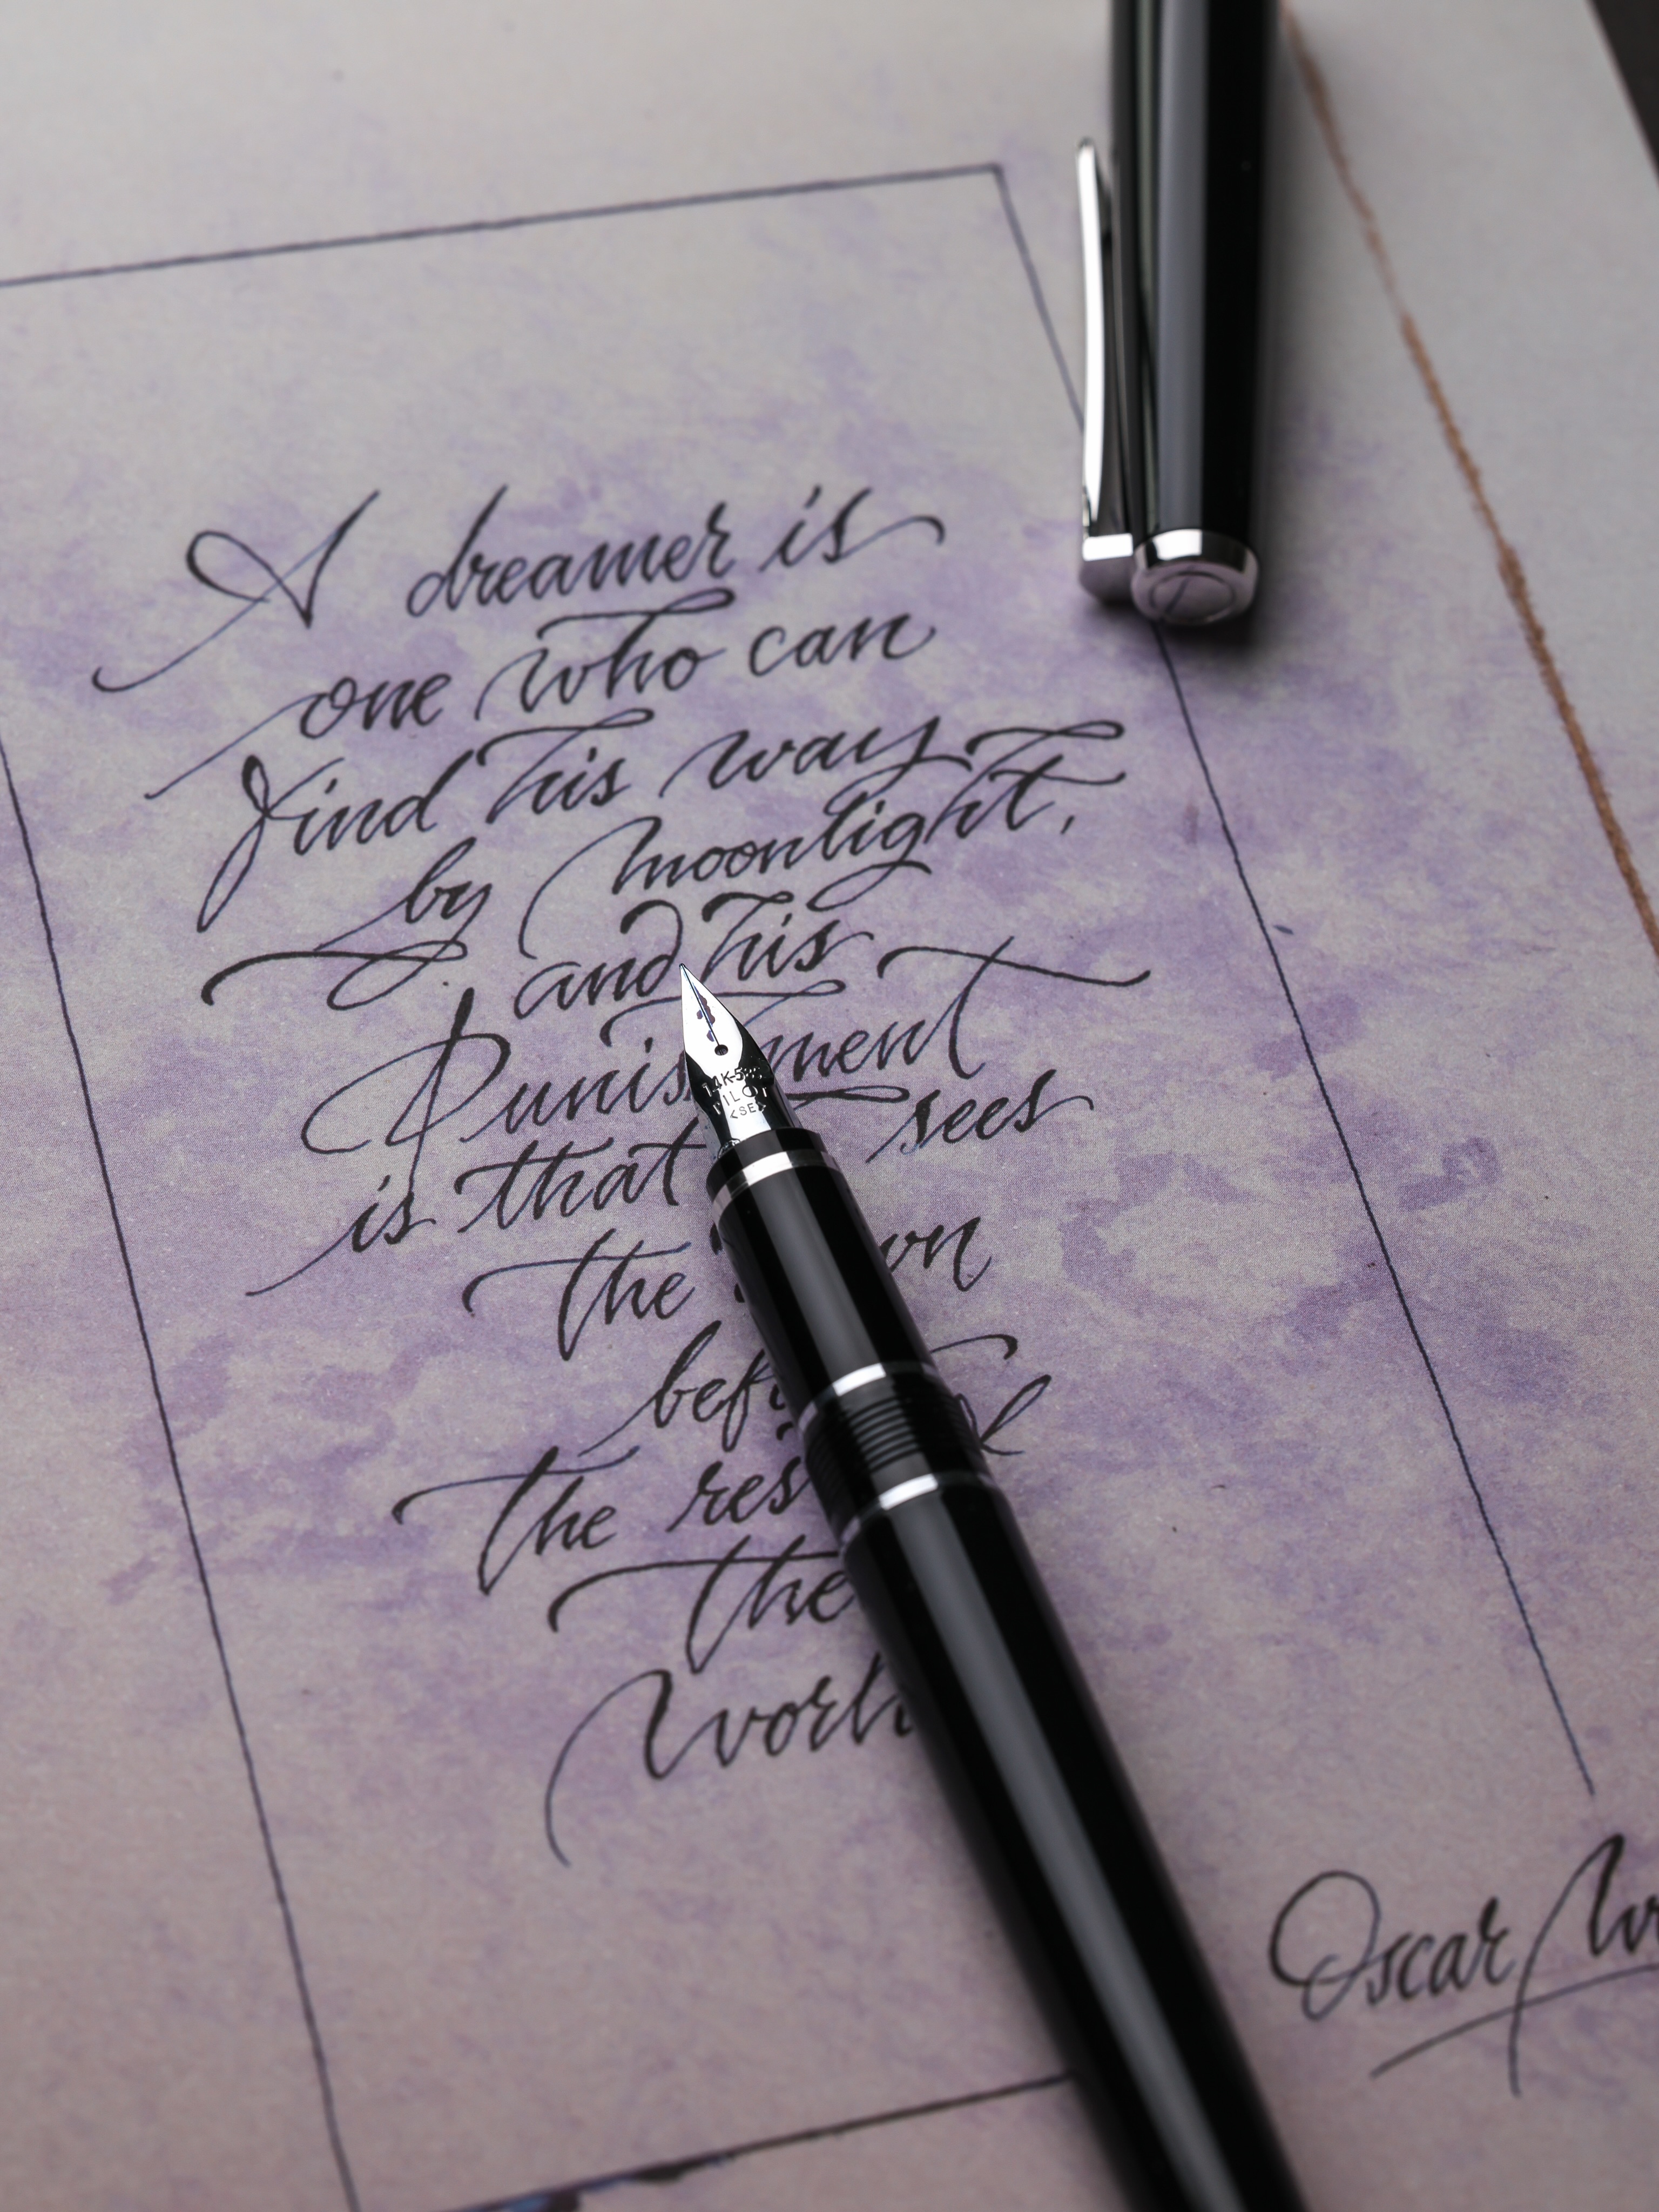 A dreamer is
one who can
find his way
by moonlight,
and his
Punishment
is that sees
the
the
the
Oscar
14K-58
PILOT
<SE>